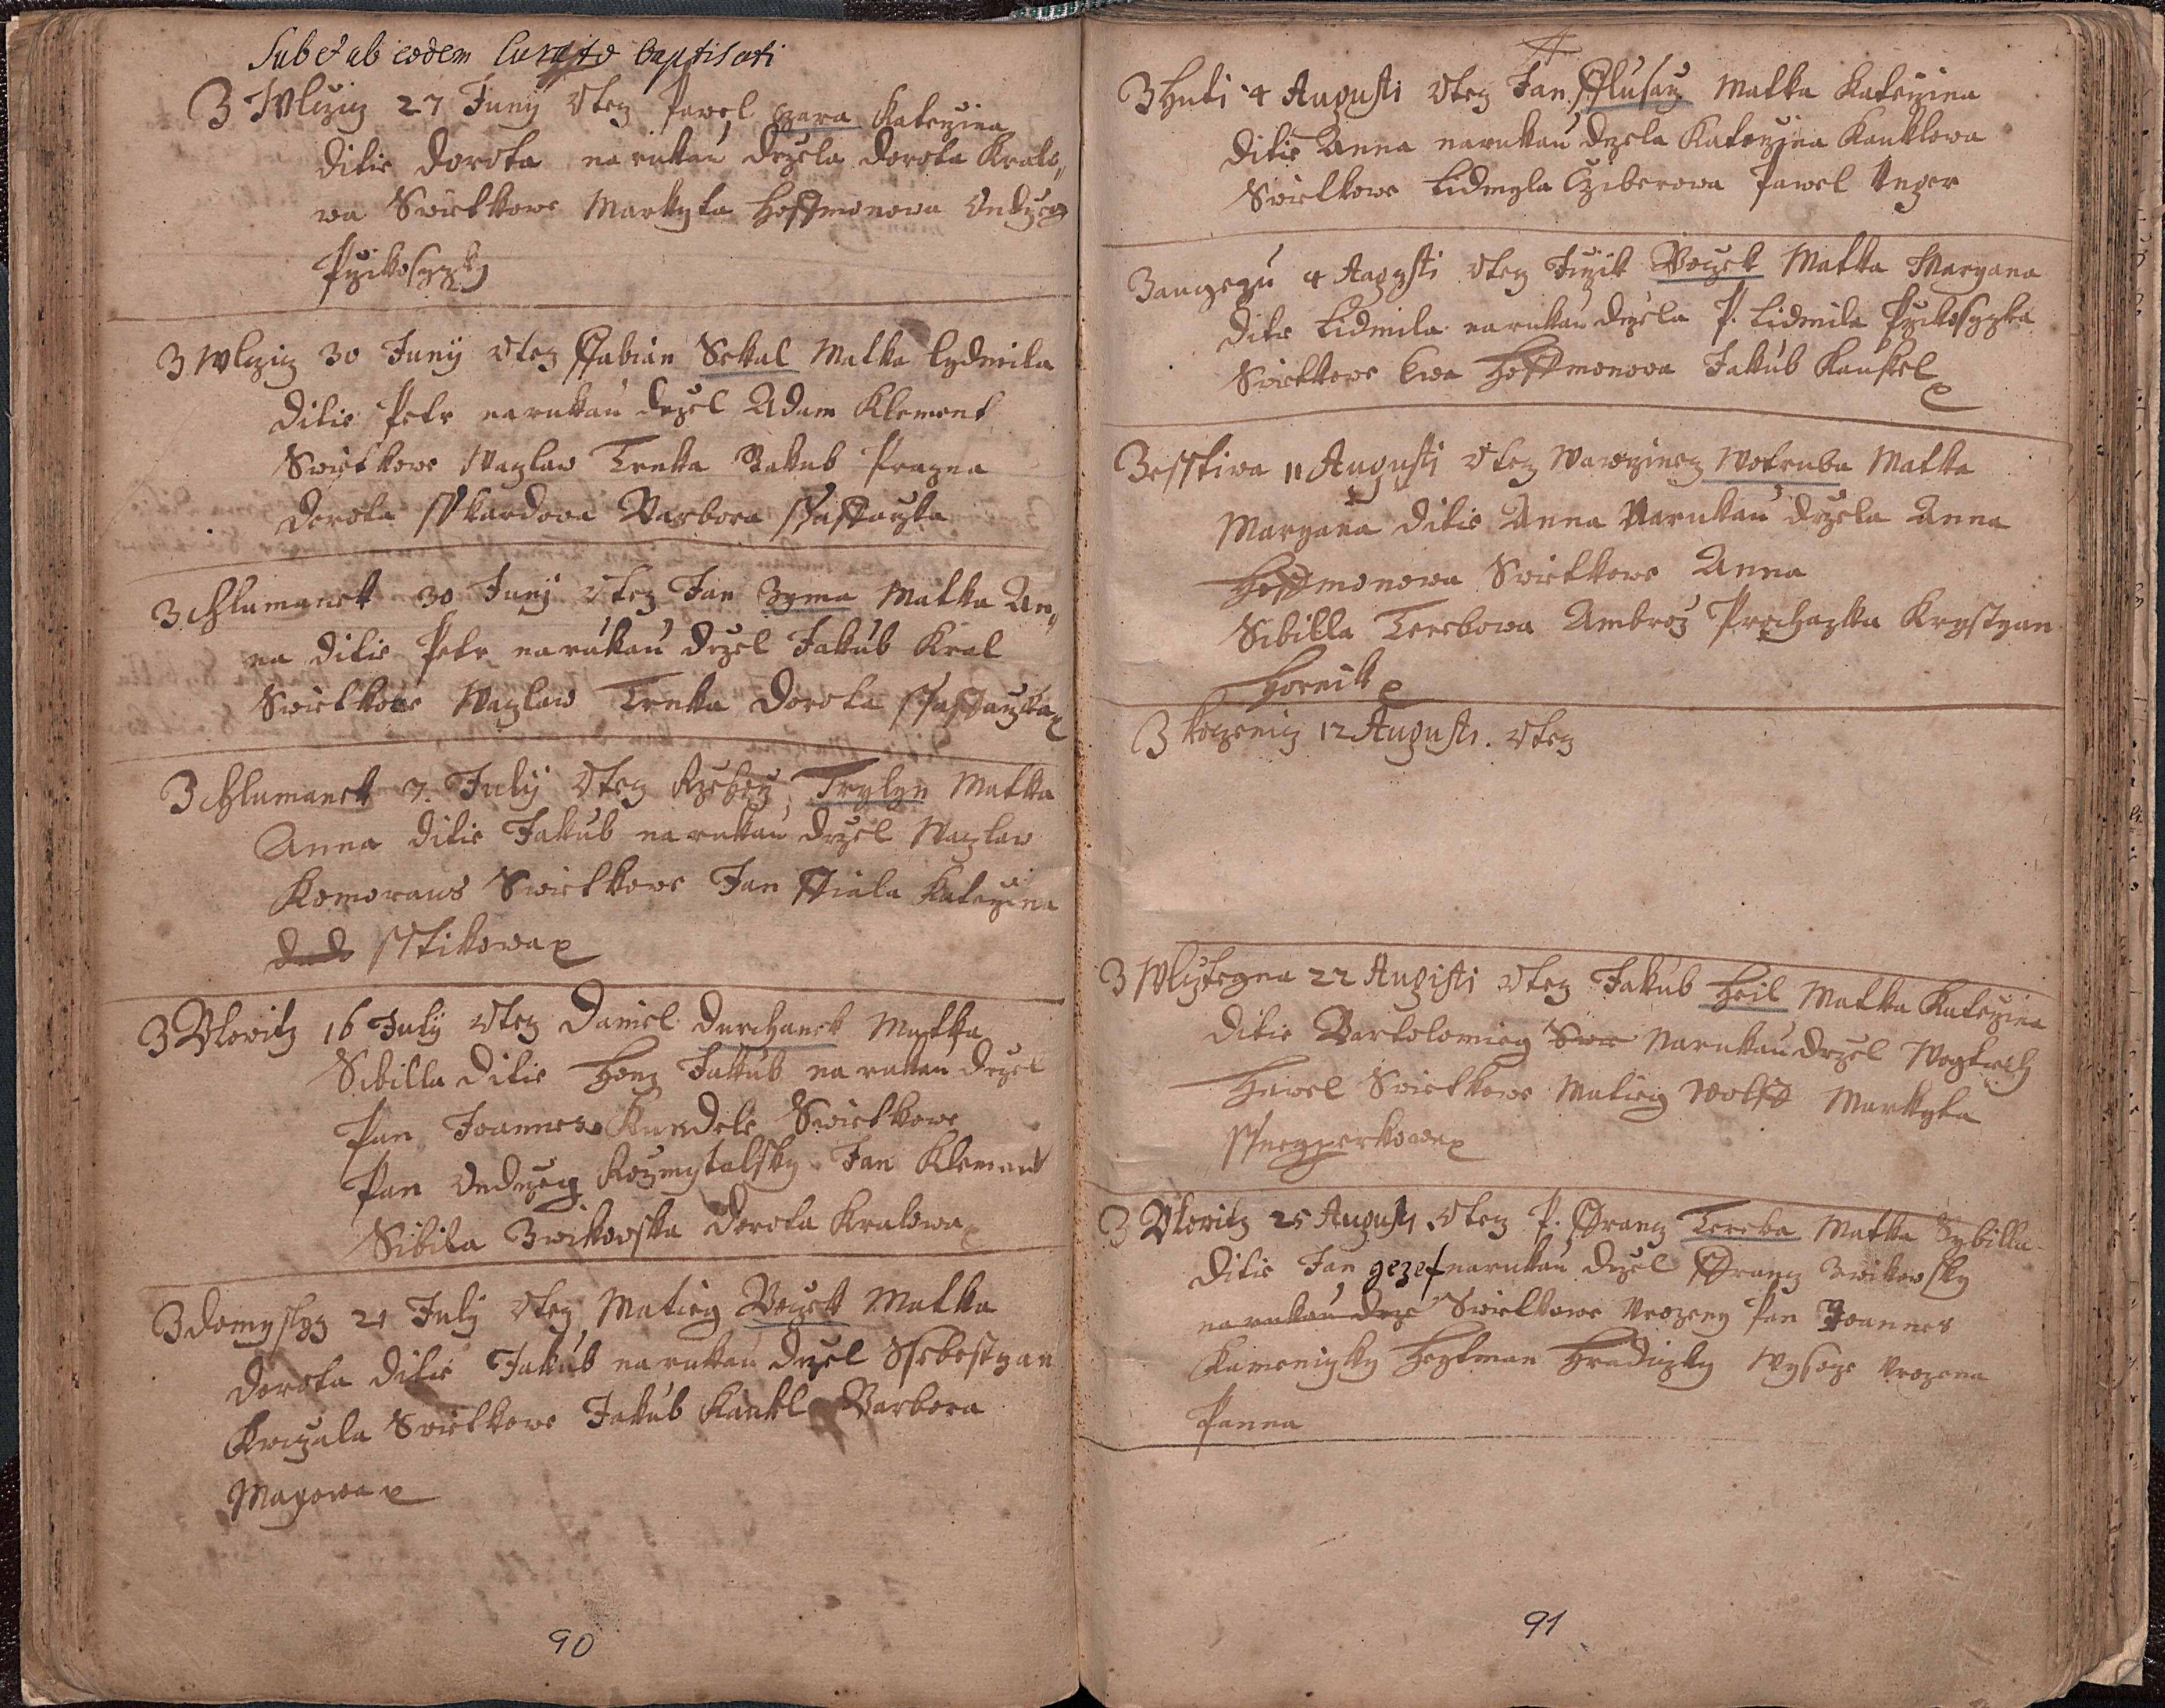 Sub et ab eodem Curato baptisati
Z Wlczig 27 Junÿ Otecz Pawel Czara Katerzina
ditie Dorota na rukau drzela Dorota Kralo„
wa Swietkowe Markyta Hoffmonowa Ondrzeg
Przikosyczky
Z Wlczicz 30 Junÿ Otecz Ffabian Sekal Matka Lydmila
ditie Petr na rukau drzel Adam Klement
Swietkowe Waczlaw Trnka Jakub Pragna
Dorota Sskardowa Barbora
Z Chlumanek 30 Junÿ Otecz Jan Zyma Matka An„
na ditie Petr na rukau drzel Jakub Kral
Swietkowe Waczlaw Trnka Dorota
Z Chlumanek 7. Julÿ Otecz Rzehorz Trylyn Matka
Anna ditie Jakub na rukau drzel Waczlaw
Komoraus Swietkowe Jan Ffiala Katerzina
Sstikowa
Z Vlowitz 16 Julÿ Otecz Daniel Durchanek Matka
Sibilla ditie Honz Jakub na rukau drzel
Pan Joannes Kundele Swietkowe
Pan Ondrzeg Rozmytalsky Jan Klement
Sibila Zwikowska Dorota Kralowa
Z Domyslycz 21 July Otecz Matieg Boczek Matka
Dorota ditie Jakub na rukau drzel Ssebestyan
Kwiczala Swietkowe Jakub Kaukl Barbora
Magowa
90
Z Huti 4 Augusti Otecz Jan Matka Katerzina
ditie Anna na rukau drzela Katerzina Kauklowa
Swietkowe Lidmyla Cziberowa Pawel Unger
4 Augusti Otecz Jirzik Boczek Matka Maryana
ditie Lidmila na rukau drzela P. Lidmila Przikosyczka
Swietkowe Ewa Hoffmonowa Jakub Kaukel
Z Esstiwa 11 Augusti Otecz Wawrzinecz Wotruba Matka
Maryana ditie Anna Na rukau drzela Anna
Hoffmonowa Swietkowe Anna
Sibilla Terebowa Ambroz Prochazka Krystyan
Hornik
Z Korzenicz 12 Augusti. Otecz
Z Wlcztegna 22 Augusti Otecz Jakub Heil Matka Katerzina
ditie Bartolomieg Swie Na rukau drzel Wogtiech
Hawel Swietkowe Matieg Wolff Markyta
Z Vlowitz 25 Augusti Otecz P. Ffrancz Tereba Matka Sybilla
ditie Jan gezef na rukau drzel Ffrancz Zwikowsky
na rukau drze Swietkowe Urozeny Pan Joannes
Kameniczky Heytman Hradiczky Wysocze Urozena
Panna
91